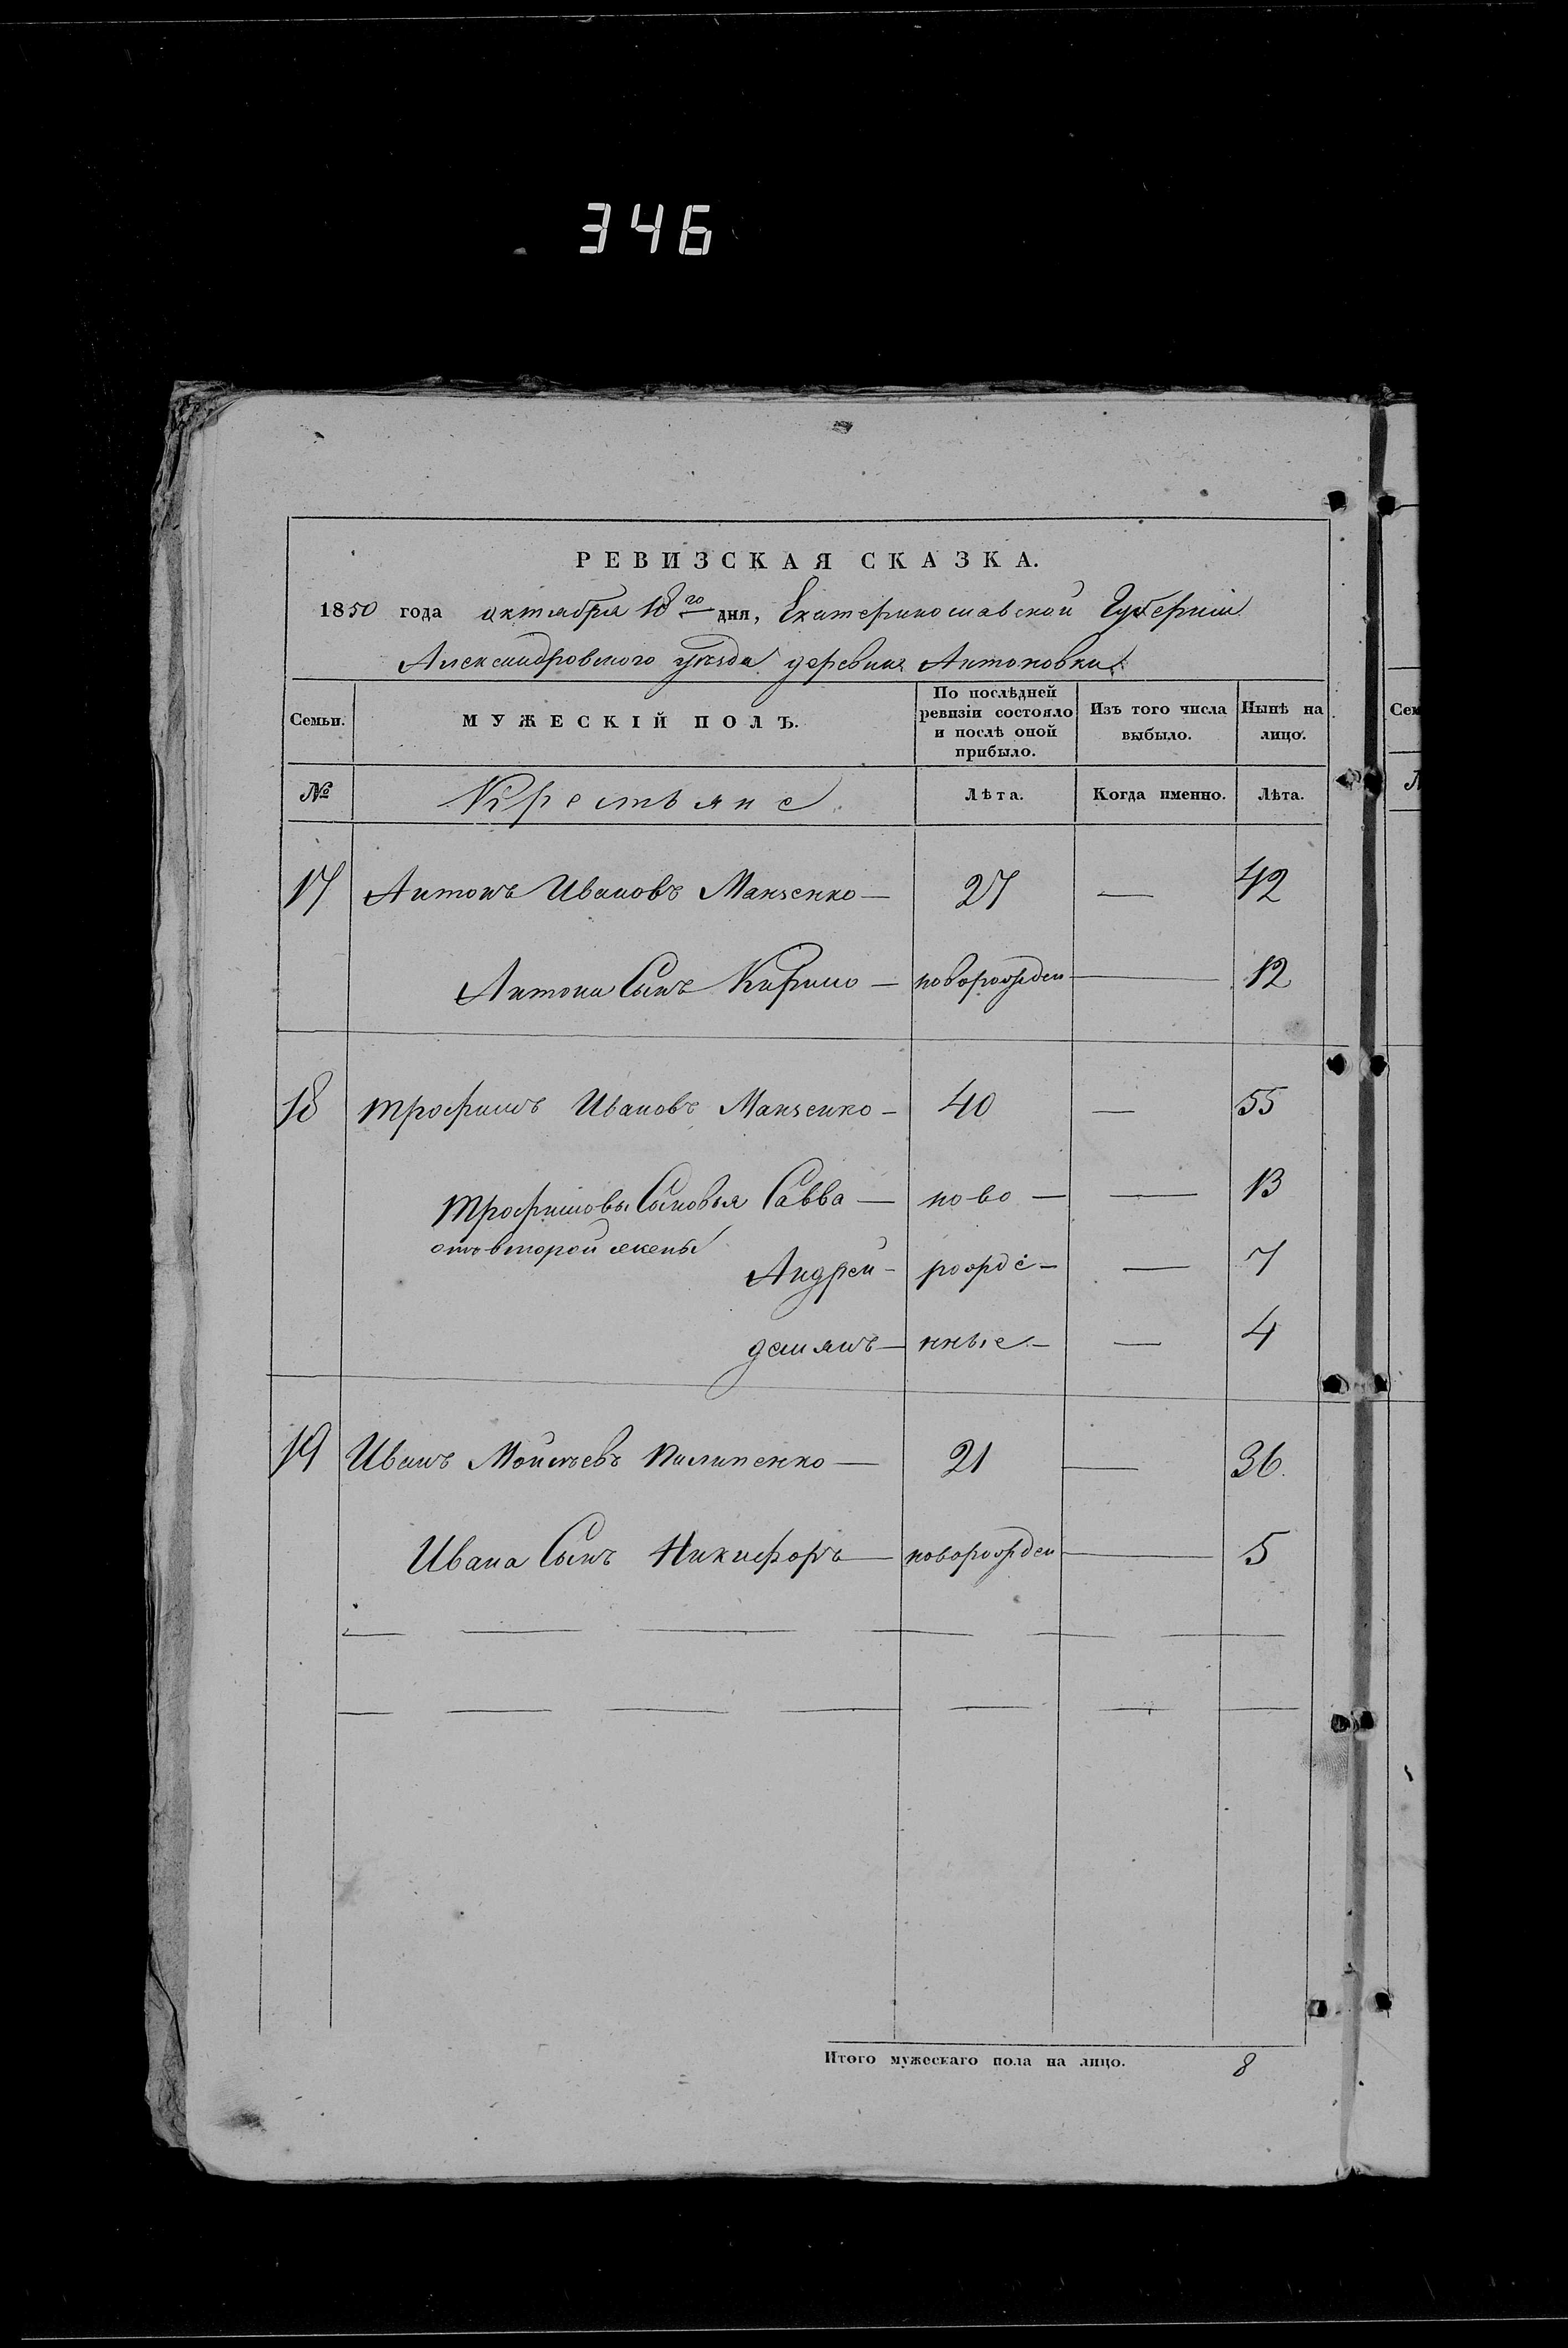 346
РЕВИЗСКАЯ СКАЗКА.
1850 года октября 18го дня, Екатеринославской Губернiи
Александровского уезда деревни Антоновки
Семьи. МУЖЕСКIЙ ПОЛЪ. По послѣдней ревизiи состояло и послѣ оной прибыло. Изъ того числа выбыло. Нынѣ на лицо.
№ Крестьяне Лѣта. Когда именно. Лѣта.
17 Антонъ Ивановъ Манзенко — 27 — 42
Антона Сынъ Кирило — новорожден — 12
18 Трофимъ Ивановъ Манзенко — 40 — 55
Трофимовы Сыновья Савва — ново — — 13
отъ второй жены
Андрей — рожде — — 7
Демянъ — нные — — 4
19 Иванъ Мойсѣевъ Пилипенко — 21 — 36.
Ивана Сынъ Никифоръ — новорожден — 5
Итого мужескаго пола на лицо. 8
Сем